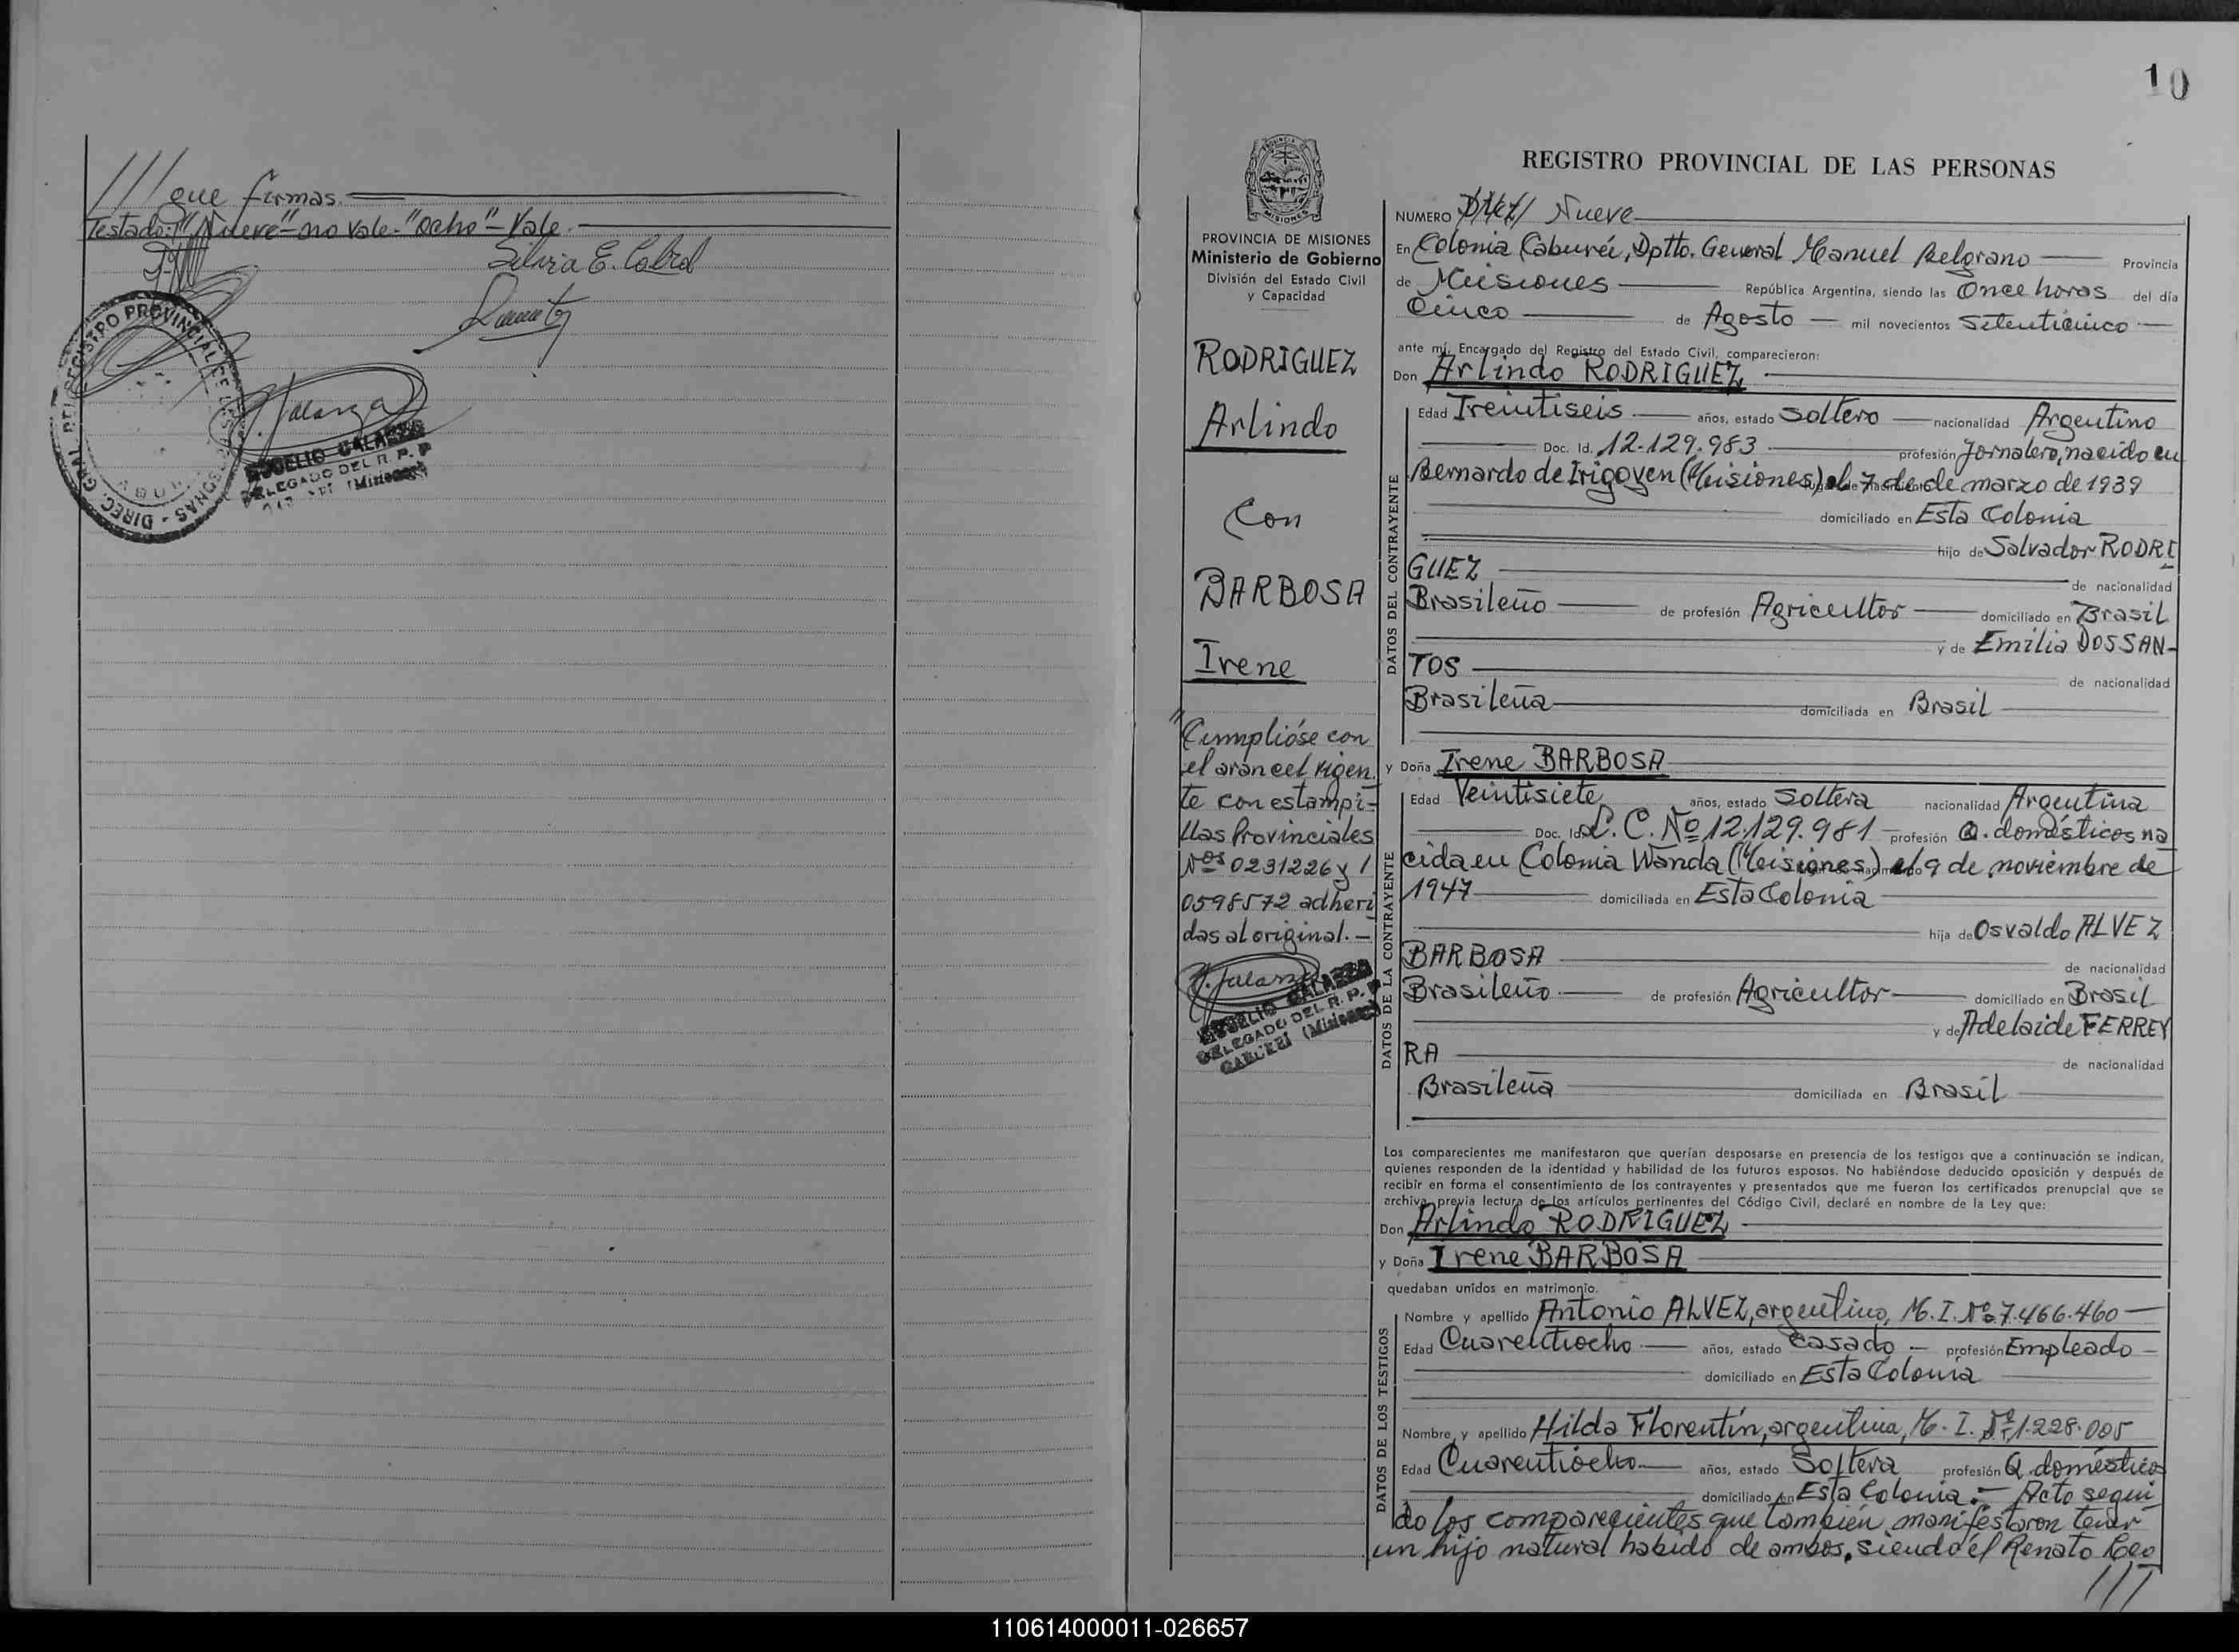 /// que firmas.
Testado: "Nueve" - no vale - "ocho" - Vale.
Silvia E. Cabral
REGISTRO PROVINCIAL DE
DIREC. GRAL.
ROGELIO GALARZA
DELEGADO DEL R. P. P.
(Misiones)
10
REGISTRO PROVINCIAL DE LAS PERSONAS
PROVINCIA DE MISIONES
Ministerio de Gobierno
División del Estado Civil
y Capacidad
RODRIGUEZ
Arlindo
Con
BARBOSA
Irene
"Cumplióse con
el arancel vigen
te con estampi-
llas Provinciales
Nos 0231226 y /
0598572 adheri
das al original. -
ROGELIO GALARZA
DELEGADO DEL R. P. P.
(Misiones)
NUMERO Nueve
En Colonia Caburéi, Dptto. General Manuel Belgrano Provincia
de Misiones República Argentina, siendo las Once horas del día
Cinco de Agosto mil novecientos Setenticinco
ante mí, Encargado del Registro del Estado Civil, comparecieron:
Don Arlindo RODRIGUEZ
DATOS DEL CONTRAYENTE
Edad Treintiseis años, estado Soltero nacionalidad Argentino
Doc. Id. 12.129.983 profesión Jornalero, nacido en
Bernardo de Irigoyen (Misiones) el 7 de de marzo de 1939
domiciliado en Esta Colonia
hijo de Salvador RODRI
GUEZ de nacionalidad
Brasileño de profesión Agricultor domiciliado en Brasil
y de Emilia DOSSAN-
TOS de nacionalidad
Brasileña domiciliada en Brasil
y Doña Irene BARBOSA
DATOS DE LA CONTRAYENTE
Edad Veintisiete años, estado Soltera nacionalidad Argentina
Doc. Id. L. C. Nº 12.129.981 profesión Q. domésticos na
cida en Colonia Wanda (Misiones) el 9 de noviembre de
1947 domiciliada en Esta Colonia
hija de Osvaldo ALVEZ
BARBOSA de nacionalidad
Brasileño de profesión Agricultor domiciliado en Brasil
y de Adelaide FERREY
RA de nacionalidad
Brasileña domiciliada en Brasil
Los comparecientes me manifestaron que querían desposarse en presencia de los testigos que a continuación se indican,
quienes responden de la identidad y habilidad de los futuros esposos. No habiéndose deducido oposición y después de
recibir en forma el consentimiento de los contrayentes y presentados que me fueron los certificados prenupcial que se
archiva, previa lectura de los artículos pertinentes del Código Civil, declaré en nombre de la Ley que:
Don Arlindo RODRIGUEZ
y Doña Irene BARBOSA
quedaban unidos en matrimonio.
DATOS DE LOS TESTIGOS
Nombre y apellido Antonio ALVEZ, argentino, M. I. Nº 7.466.460
Edad Cuarentiocho años, estado Casado profesión Empleado
domiciliado en Esta Colonia
Nombre y apellido Hilda Florentín, argentina, M. I. Nº 1.228.005
Edad Cuarentiocho años, estado Soltera profesión Q. domésticos
domiciliado en Esta Colonia. - Acto segui
do los comparecientes que también manifestaron tener
un hijo natural habido de ambos, siendo el Renato Leo
///
110614000011-026657